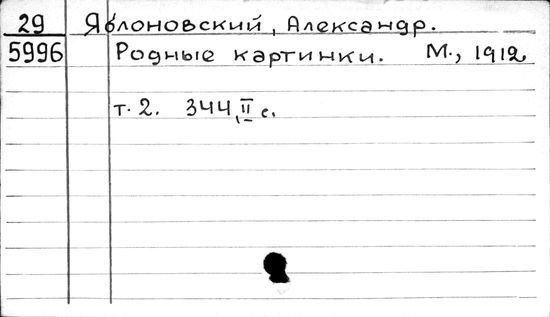 29 Яблоновский, Александр.
5996 Родные картинки. М., 1912
т. 2. 344, II с.